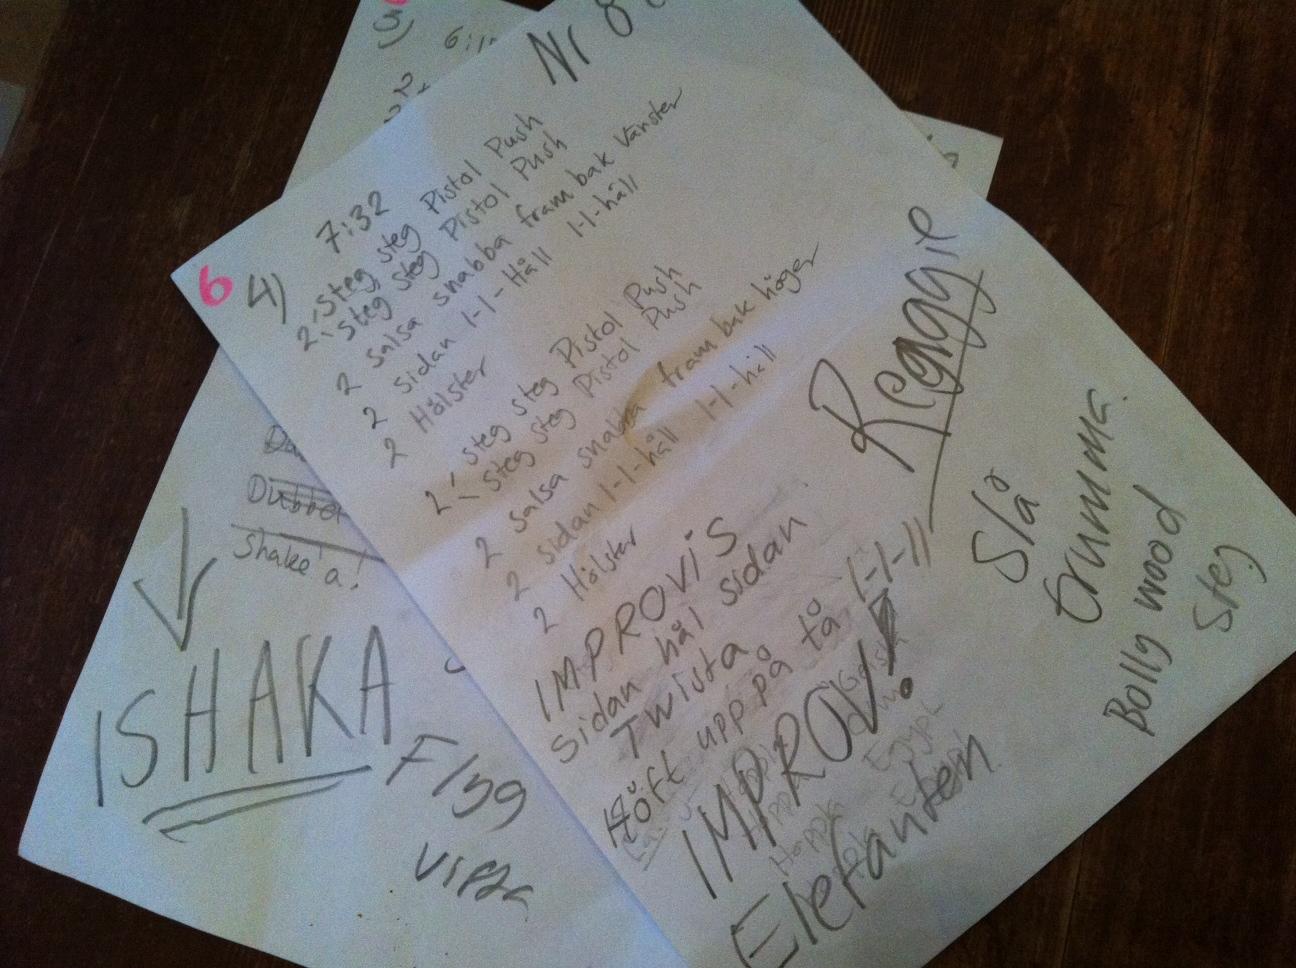 Nr 8
6 4) 7:32
2 steg steg Pistol Push
steg steg Pistol Push
2 Salsa snabba fram bak Vänster
2 sidan 1-1-Håll 1-1-håll
2 Hölster
2 steg steg Pistol Push
steg steg Pistol Push
2 Salsa snabba fram bak höger
2 sidan 1-1-håll 1-1-håll
2 Hölster
IMPROVIS
Sidan häl sidan
Twista
Höft upp på tå 1-1-11
IMPROV!
Elefanten
Reggie
Slå
trumma.
Bollywood
Steg
Dubbel
Shake'a!
ISHAKA
Flyg